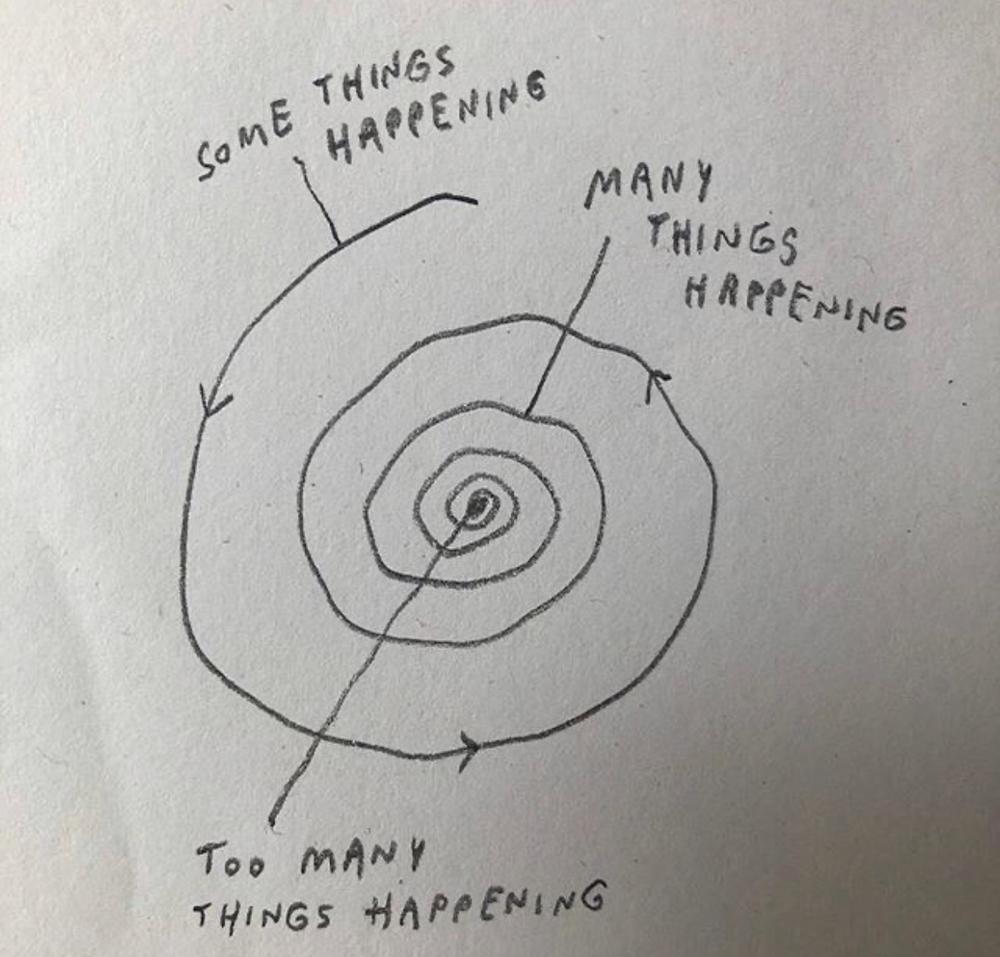 SOME THINGS
HAPPENING
MANY
THINGS
HAPPENING
TOO MANY
THINGS HAPPENING